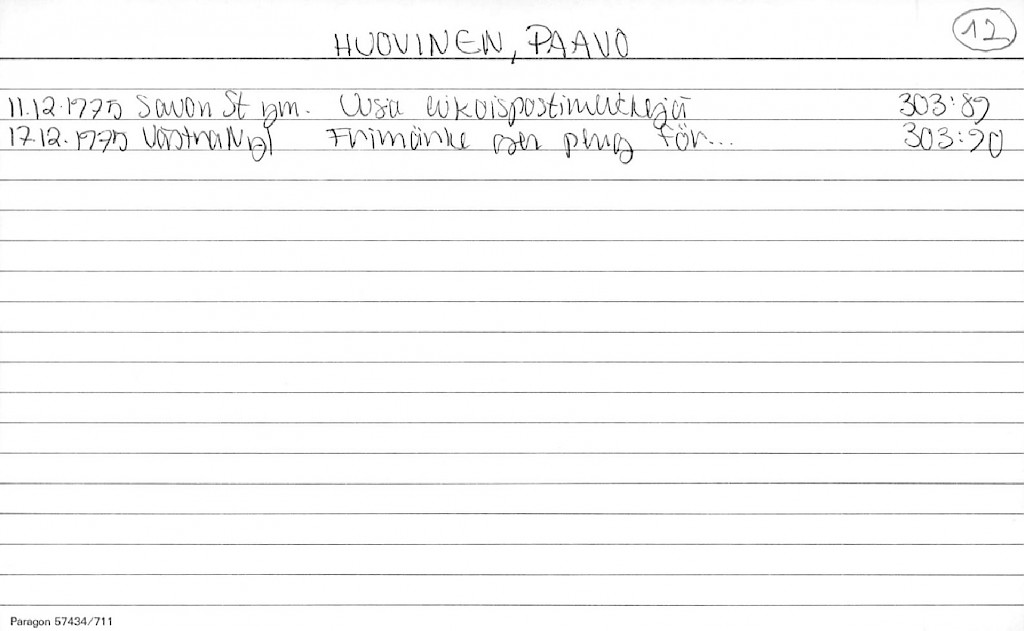 HUOVINEN, PAAVO
12
11.12.1975 Savon St ym. Uusia erikoispostimerkkejä 303:89
17.12.1975 Västra Nyl Frimärke ger peng för... 303:90
Paragon 57434/711